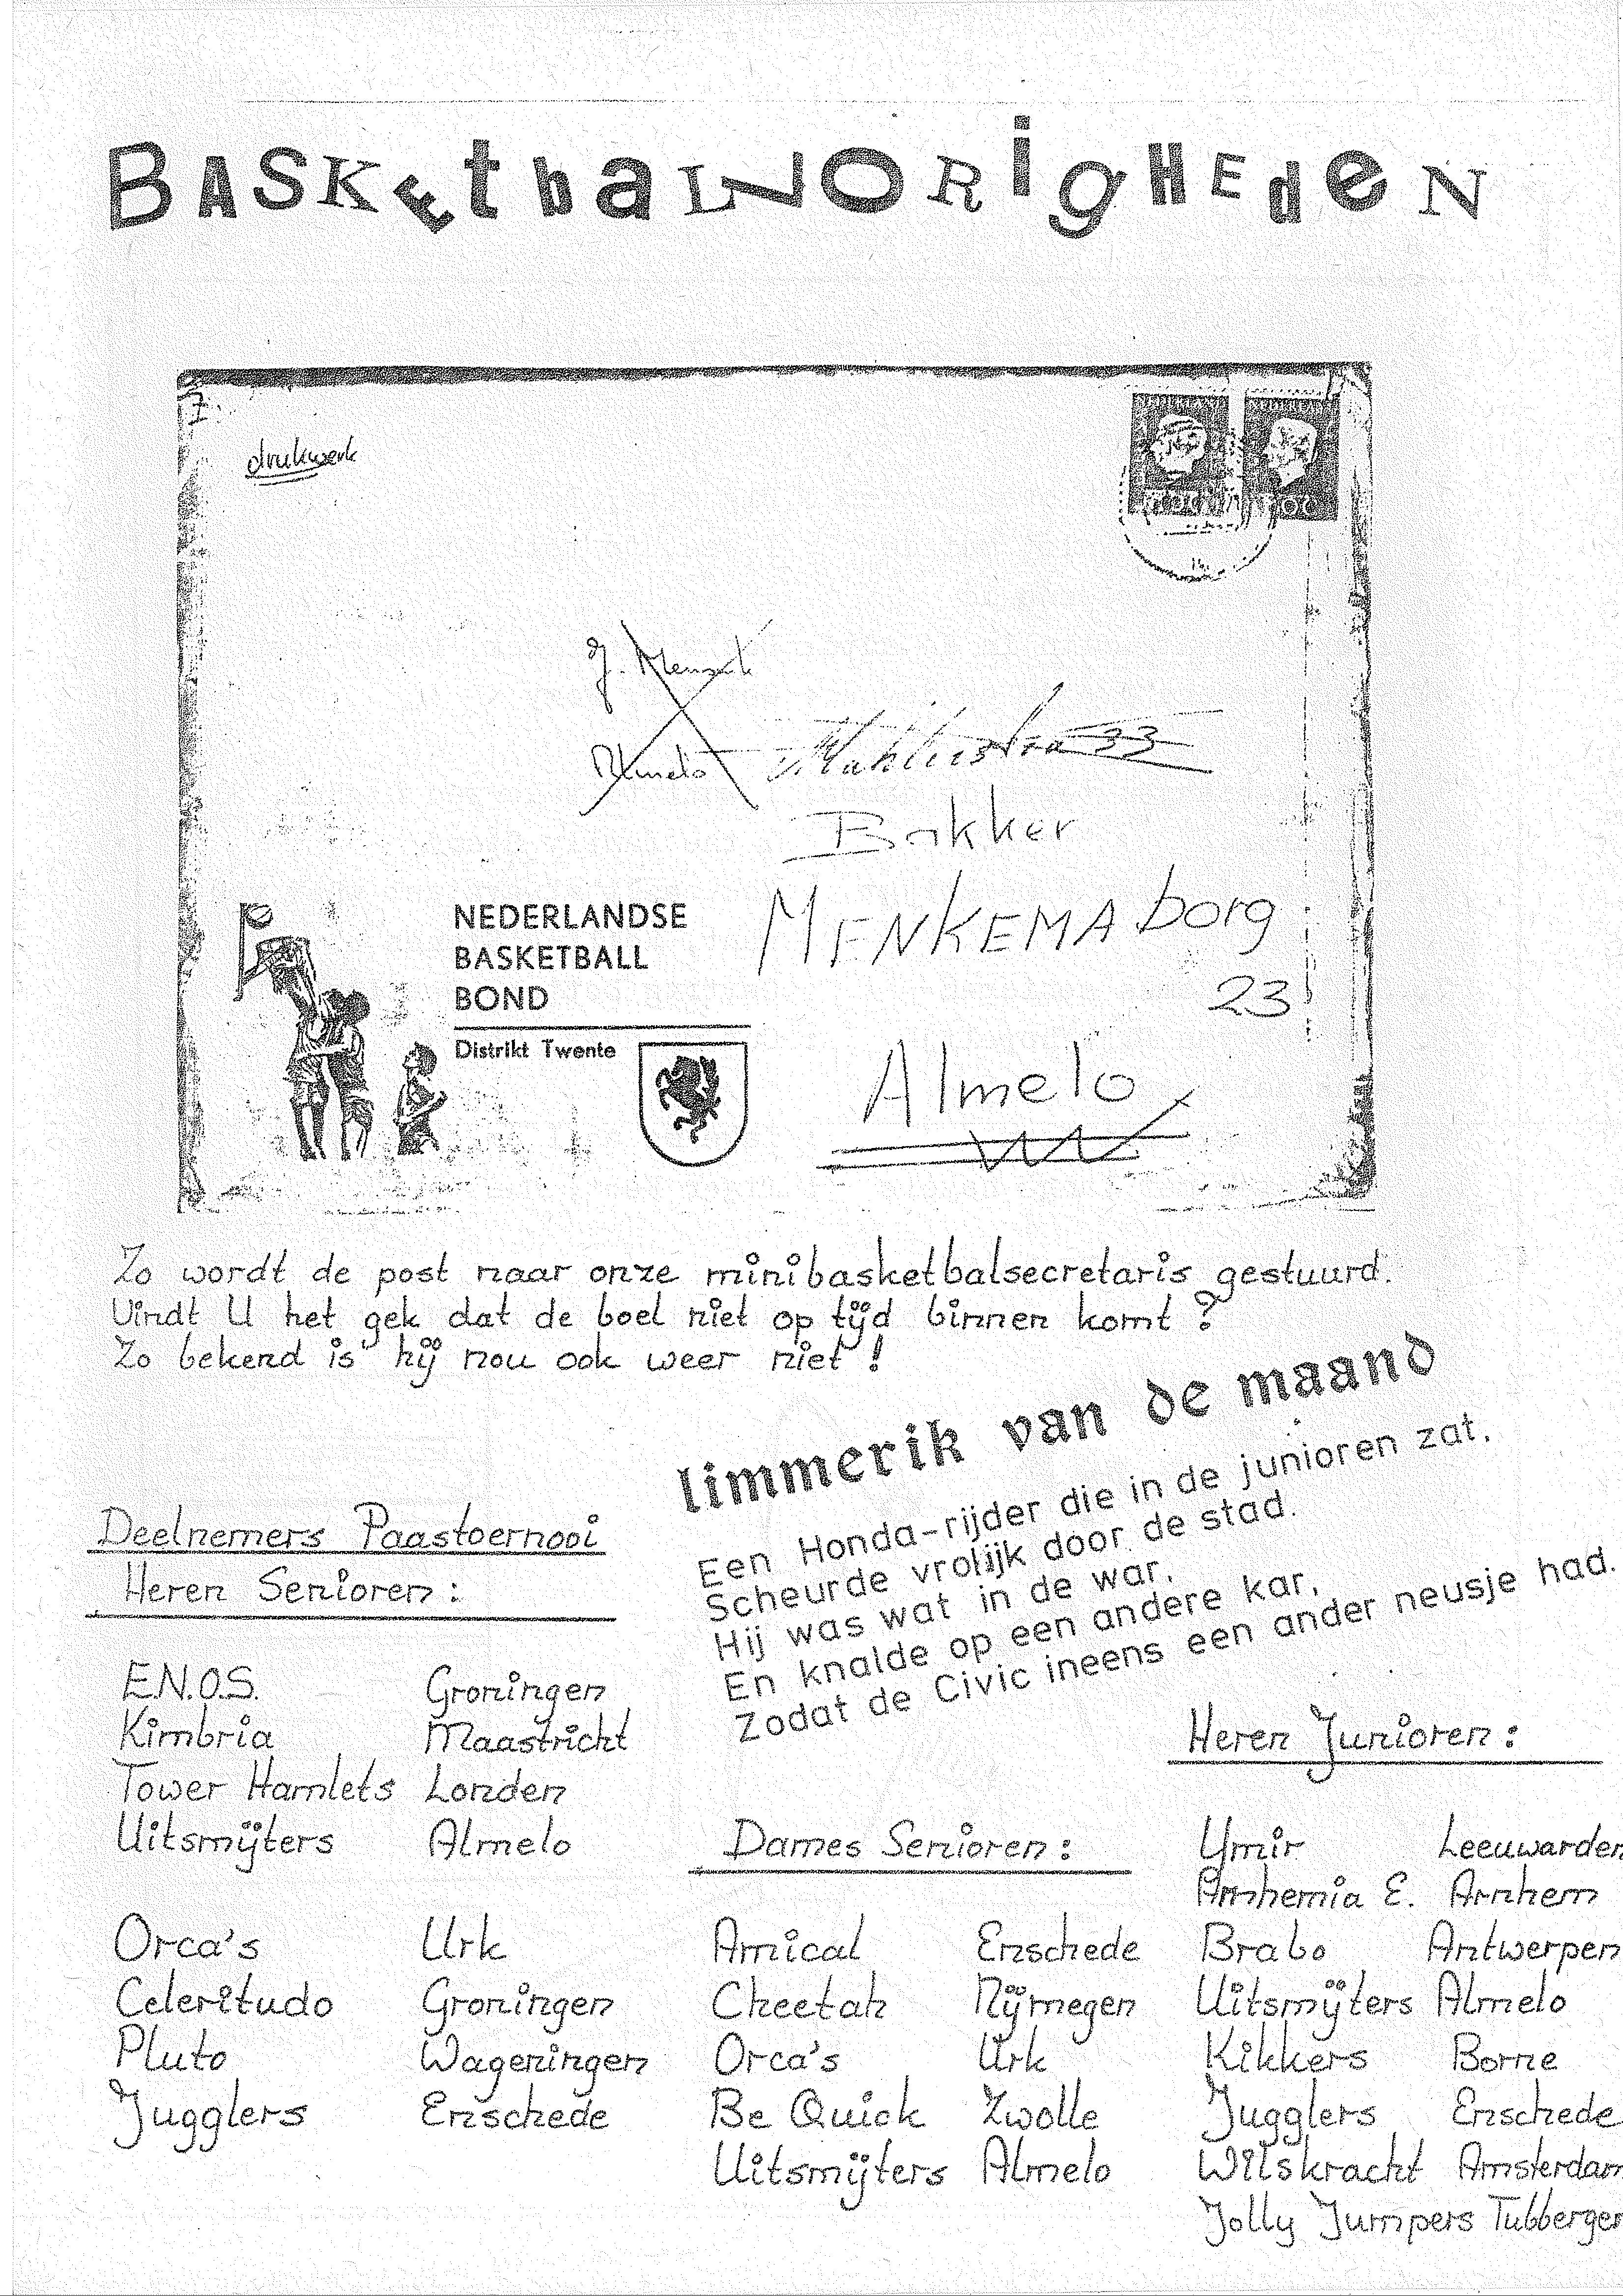 BASKEtbaLLORigHEdeN
drukwerk
Almelo
33
Bakker
MENKEMAborg
23
Almelo
NEDERLANDSE
BASKETBALL
BOND
Distrikt Twente
Zo wordt de post naar onze minibasketbalsecretaris gestuurd.
Vindt U het gek dat de boel niet op tijd binnen komt?
Zo bekend is hij nou ook weer niet!
limmerik van de maand
Een Honda-rijder die in de junioren zat,
Scheurde vrolijk door de stad.
Hij was wat in de war,
En knalde op een andere kar,
Zodat de Civic ineens een ander neusje had.
Deelnemers Paastoernooi
Heren Senioren:
E.N.O.S. Groningen
Kimbria Maastricht
Tower Hamlets Londen
Uitsmijters Almelo
Orca's Urk
Celeritudo Groningen
Pluto Wageningen
Jugglers Enschede
Dames Senioren:
Amical Enschede
Cheetah Nijmegen
Orca's Urk
Be Quick Zwolle
Uitsmijters Almelo
Heren Junioren:
Ymir Leeuwarden
Arnhemia E. Arnhem
Brabo Antwerpen
Uitsmijters Almelo
Kikkers Borne
Jugglers Enschede
Wilskracht Amsterdam
Jolly Jumpers Tubbergen